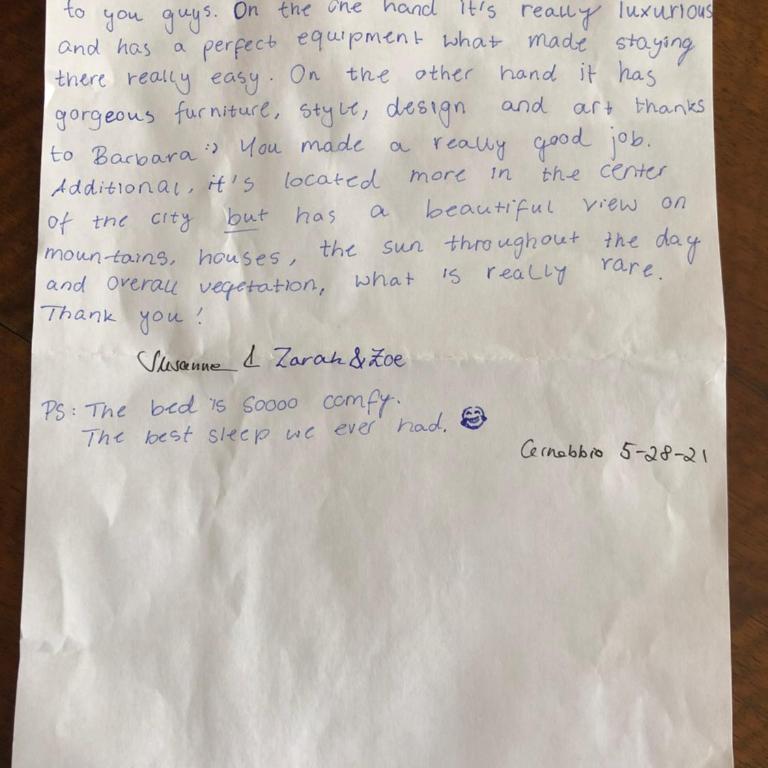 to you guys. On the one hand it's really luxurious
and has a perfect equipment what made staying
there really easy. On the other hand it has
gorgeous furniture, style, design and art thanks
to Barbara :) You made a really good job.
Additional, it's located more in the center
of the city but has a beautiful view on
mountains, houses, the sun throughout the day
and overall vegetation, what is really rare.
Thank you!
Susanne & Zarah & Zoe
PS: The bed is soooo comfy.
The best sleep we ever had. 😂
Cernobbio 5-28-21